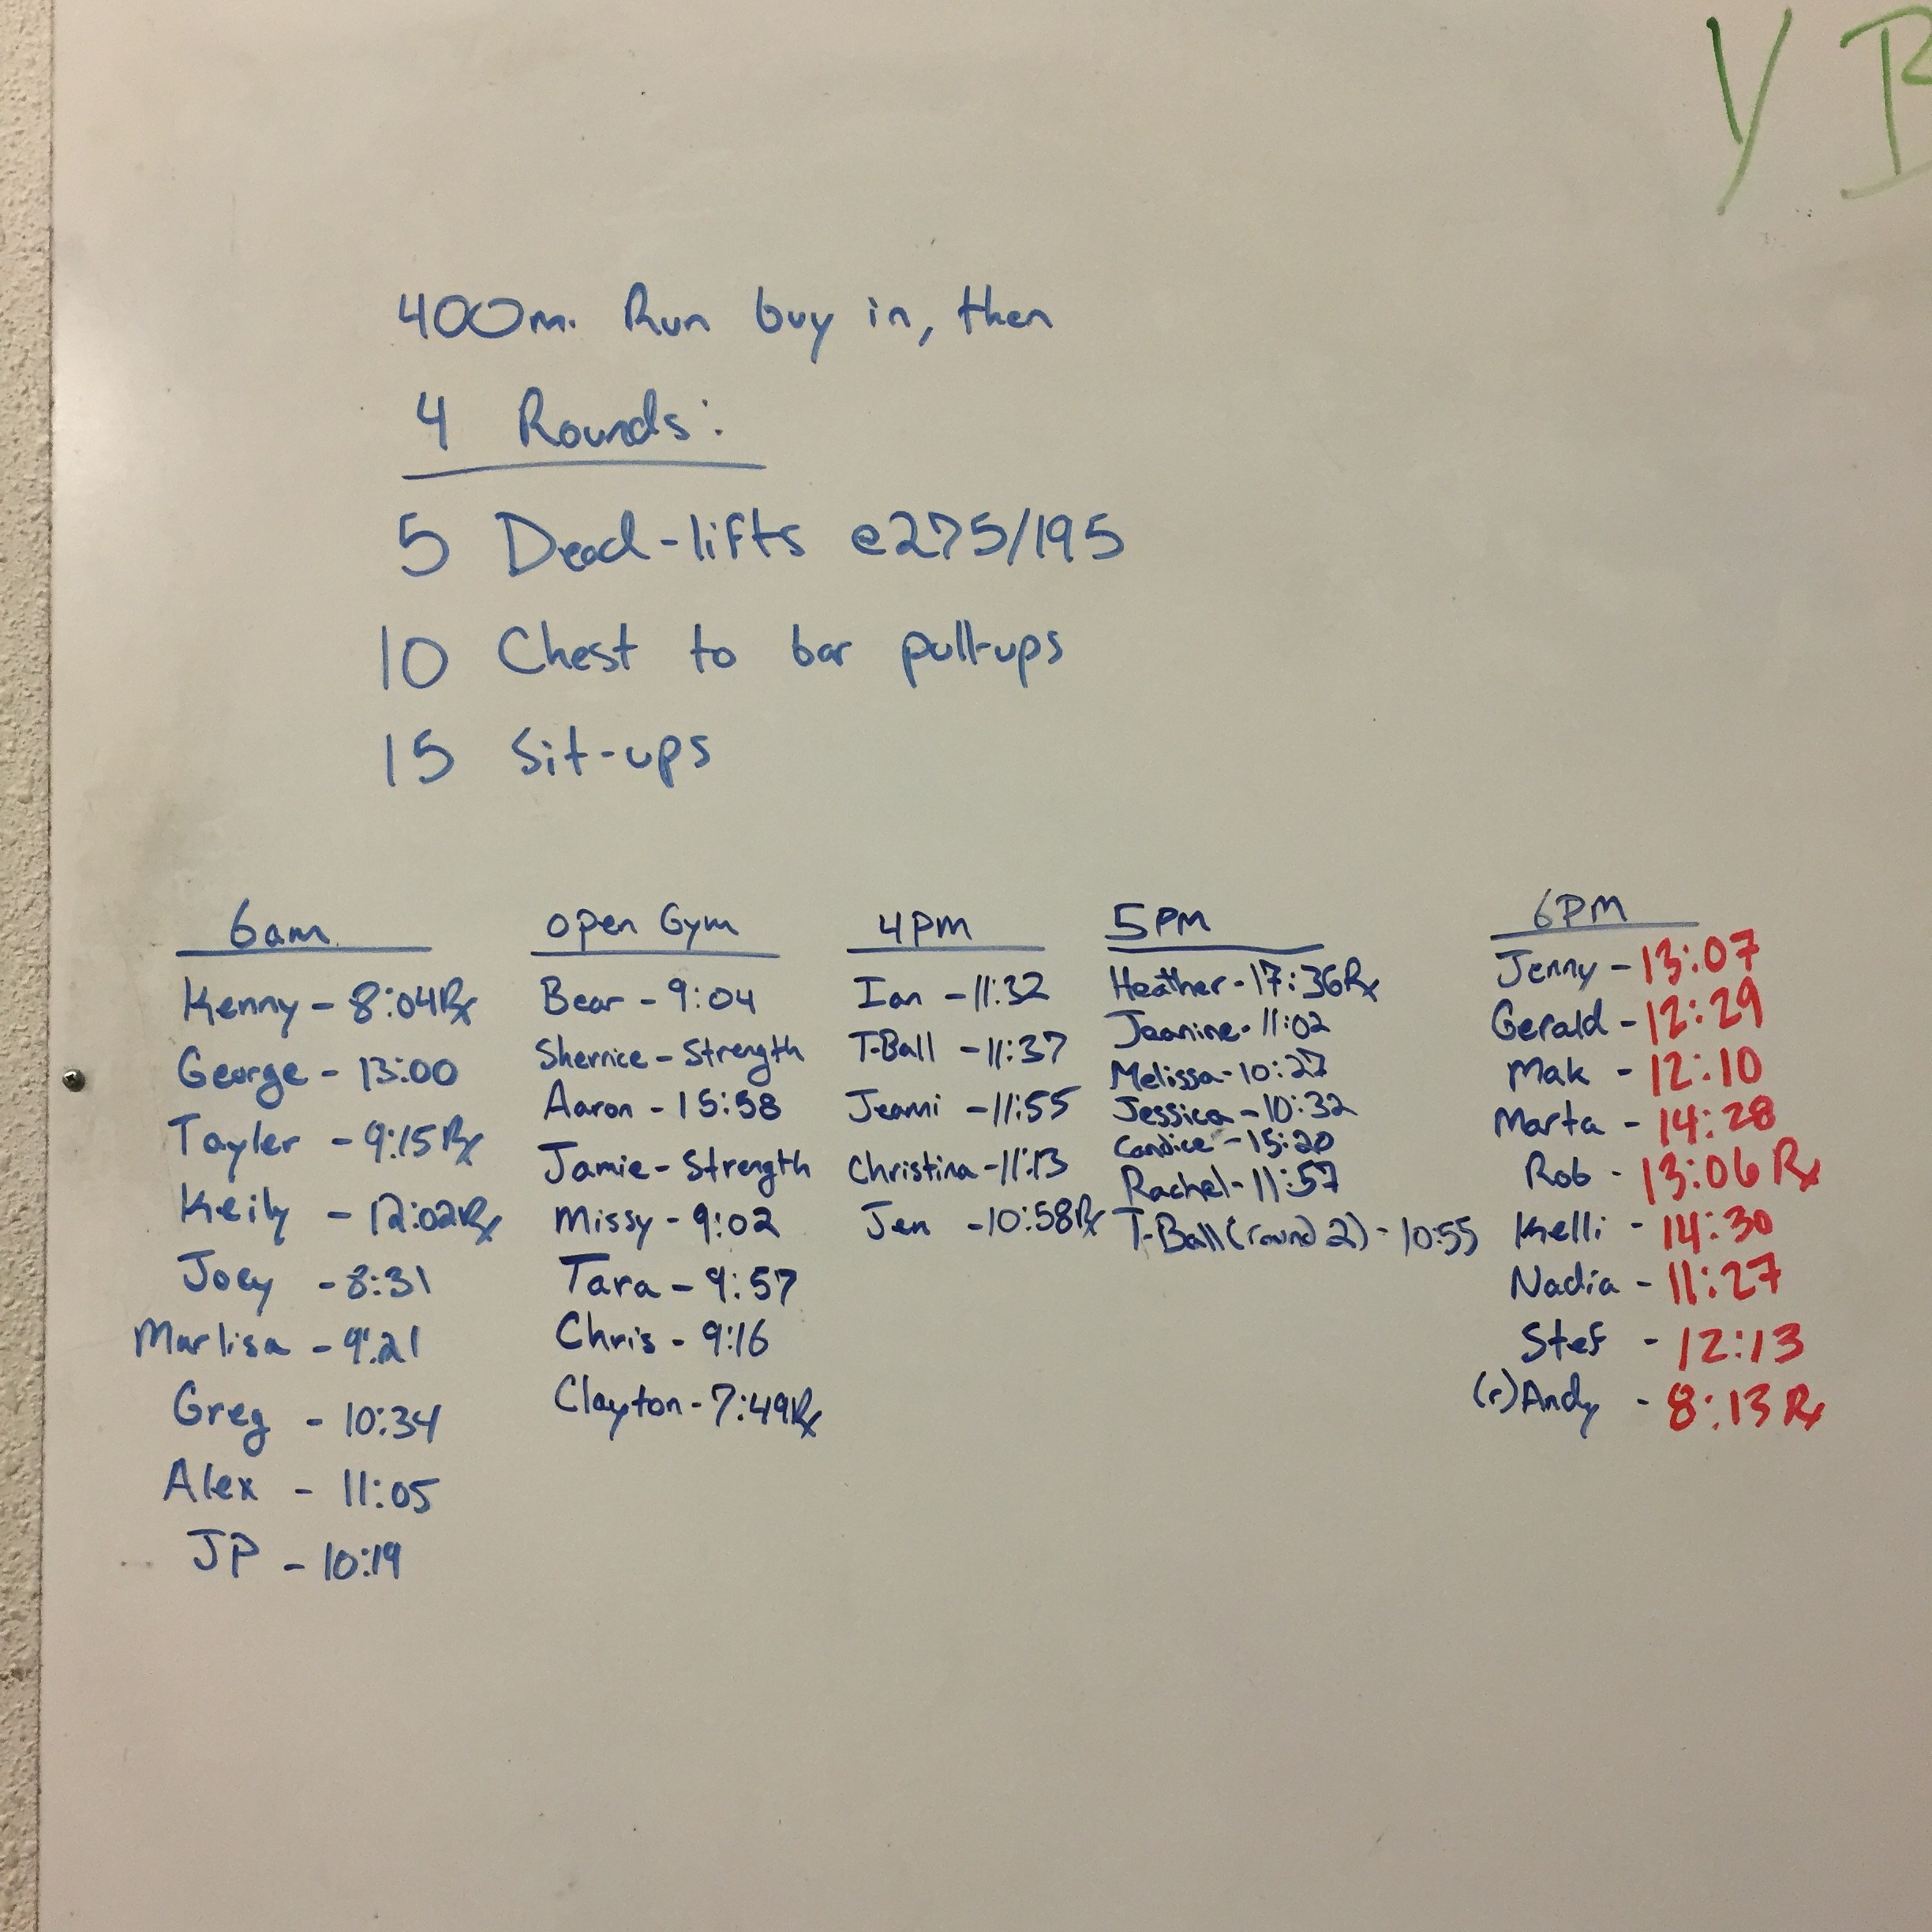 Y B
400m. Run buy in, then
4 Rounds:
5 Dead-lifts @275/195
10 Chest to bar pull-ups
15 Sit-ups
6am
Kenny - 8:04Rx
George - 13:00
Tayler - 9:15Rx
Keily - 12:02Rx
Joey - 8:31
Marlisa - 9:21
Greg - 10:34
Alex - 11:05
JP - 10:19
open Gym
Bear - 9:04
Shernice - Strength
Aaron - 15:58
Jamie - Strength
Missy - 9:02
Tara - 9:57
Chris - 9:16
Clayton - 7:49Rx
4PM
Ian - 11:32
T-Ball - 11:37
Jeami - 11:55
Christina - 11:13
Jen - 10:58Rx
5PM
Heather - 17:36Rx
Jeanine - 11:02
Melissa - 10:27
Jessica - 10:32
Candice - 15:20
Rachel - 11:57
T-Ball (round 2) - 10:55
6PM
Jenny - 13:07
Gerald - 12:29
Mak - 12:10
Marta - 14:28
Rob - 13:06 Rx
Kelli - 14:30
Nadia - 11:27
Stef - 12:13
(r) Andy - 8:13 Rx